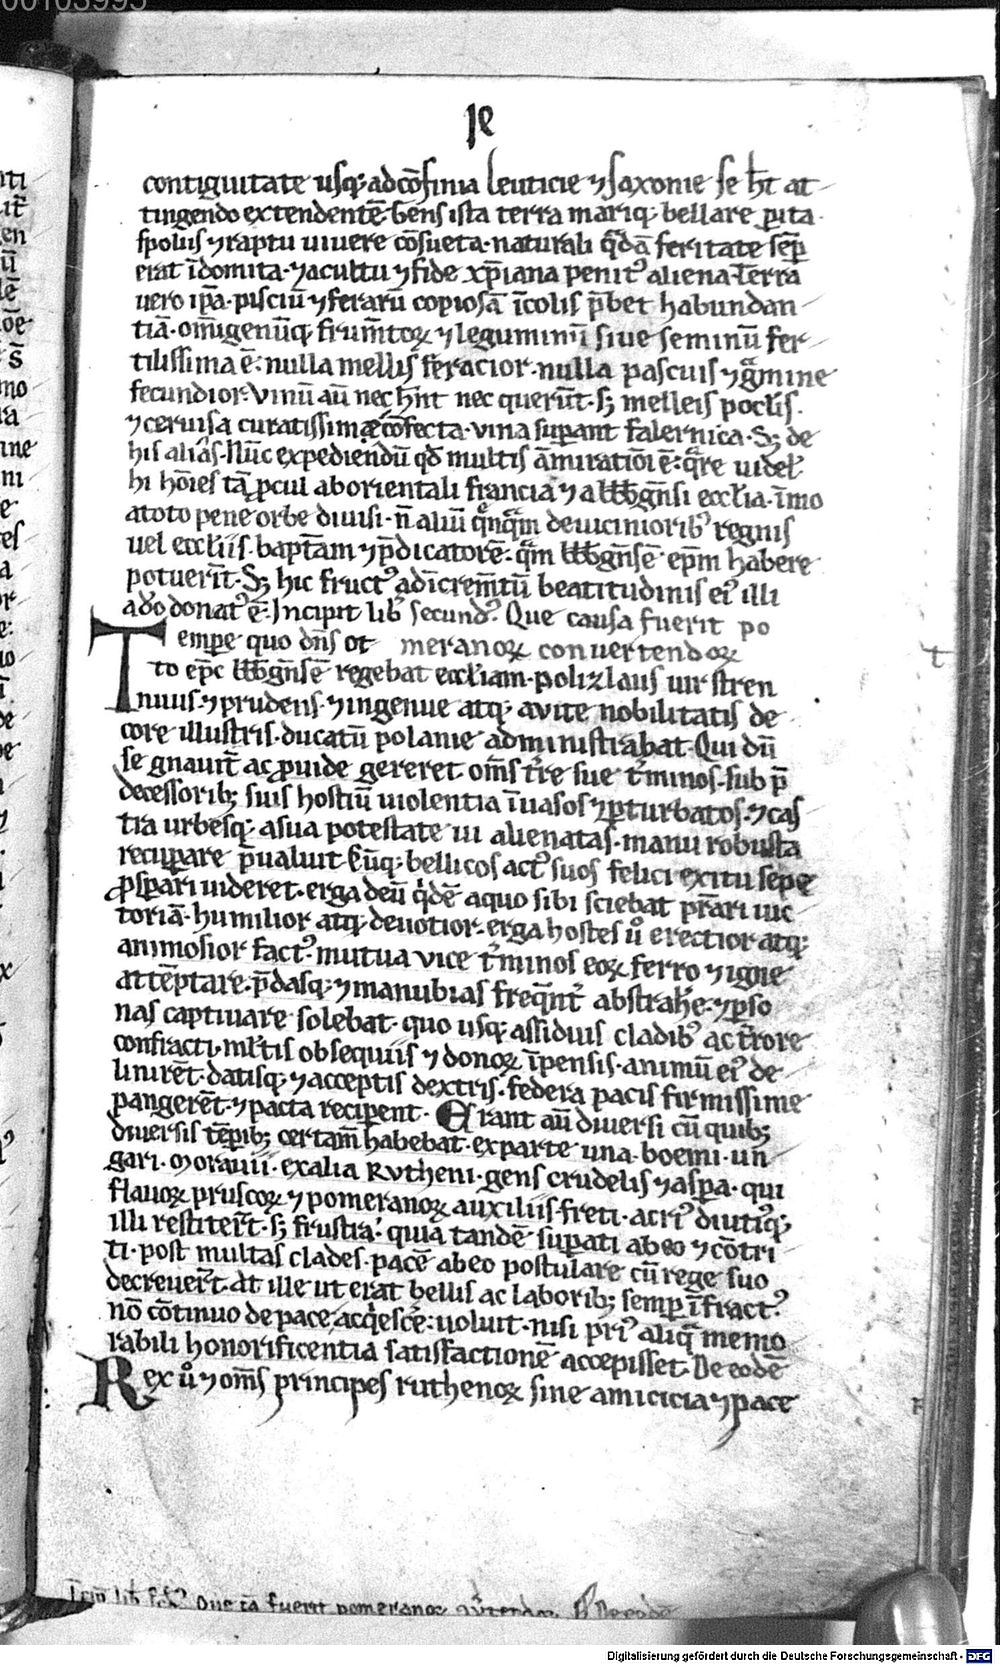 00103995
contiguitate usq; ad cōfinia Leuticie ⁊ Saxonie se hr̄t at
tingendo extendentē. Gens ista terra mariq; bellare ꝑita.
spoliis ⁊ raptu uiuere cōsueta. naturali q̄dā feritate semꝑ
erat īdomita. ⁊ a cultu ⁊ fide xp̄iana penit᷒ aliena. Terra
uero ip̄a. pisciū ⁊ ferarū copiosā īcolis p̄bet habundan
tiā. omīgenūq; frum̄toꝝ ⁊ leguminū siue seminū fer
tilissima ē. nulla mellis feracior. nulla pascuis ⁊ gͣmine
fecundior. Vinū aū nec hn̄t nec querūt. sꝫ melleis pocl̄is.
⁊ ceruisa curatissimæ cōfecta. vina suꝑant falernica. Sꝫ de
his alias. Nūc expediendū qd̄ multis āmiratiōi ē. qͣre uidel̄
hi hōies tā ꝓcul ab orientali francia ⁊ a bbḡnsi eccl̄ia. īmo
a toto pene orbe diuisi. n̄ aliū qͣnqͣm de uiciniorib᷒ regnis
uel eccl̄iis. bapt̄am ⁊ p̄dicatorē. qͣm bbḡnsē ep̄m habere
potuerīt. Sꝫ hic fruct᷒ ad īcrem̄tū beatitudinis ei᷒ illi
a do donat᷒ ē. Incipit lib̄ secund᷒. Que causa fuerit po
Tempe quo dn̄s ot meranoꝝ conuertendoꝝ
to ep̄c bbḡnsē regebat eccl̄iam. polizlaus uir stren
nuus. ⁊ prudens. ⁊ ingenue atq; auite nobilitatis de
core illustris. ducatū polanie administrabat. Qui dū
se gnauit̄ ac ꝓuide gereret. om̄s t̄re sue t̄minos. sub p̄
decessorib; suis hostiū uiolentia īuasos ⁊ ꝑturbatos. ⁊ cas
tra urbesq; a sua potestate ui alienatas. manu robusta
recuꝑare p̄ualuit. Cūq; bellicos act᷒ suos felici exitu sepe
ꝓsꝑari uideret. erga deū qͥdē a quo sibi sciebat pr̄ari uic
toriā. humilior atq; deuotior. erga hostes ůero erectior atq;
animosior fact᷒. mutua uice t̄minos eoꝝ ferro ⁊ igne
attēptare. p̄dasq; ⁊ manubias freq̄nt̄ abstrahe. ⁊ ꝑso
nas captiuare solebat. quo usq; assiduis cladib᷒ ac t̄rore
confracti. ml̄tis obsequiis ⁊ donoꝝ īpensis. animū ei᷒ de
linirēt. datisq; ⁊ acceptis dextris. federa pacis firmissime
pangerēt. ⁊ pacta reciꝑent. Erant aū diuersi cū quib;
diuersis tēꝑib; certam̄ habebat. ex parte una. boemi. un
gari. Morauii. ex alia Rvtheni. gens crudelis ⁊ asꝑa. qui
flauoꝝ pruscoꝝ ⁊ pomeranoꝝ auxiliis freti. acri᷒ diuti᷒q;
illi restiter̄t. sꝫ frustra. quia tandē suꝑati ab eo ⁊ cōtri
ti. post multas clades. pacē ab eo postulare cū rege suo
decreuer̄t. At ille ut erat bellis ac laborib; semꝑ īfract᷒
nō cōtinuo de pace acqͥescē. uoluit. nisi pri᷒ aliqͣ memo
rabili honorificentia satisfactionē accepisset. De eodē
Rex ů ⁊ om̄s principes ruthenoꝝ sine amicicia ⁊ pace
Digitalisierung gefördert durch die Deutsche Forschungsgemeinschaft - DFG